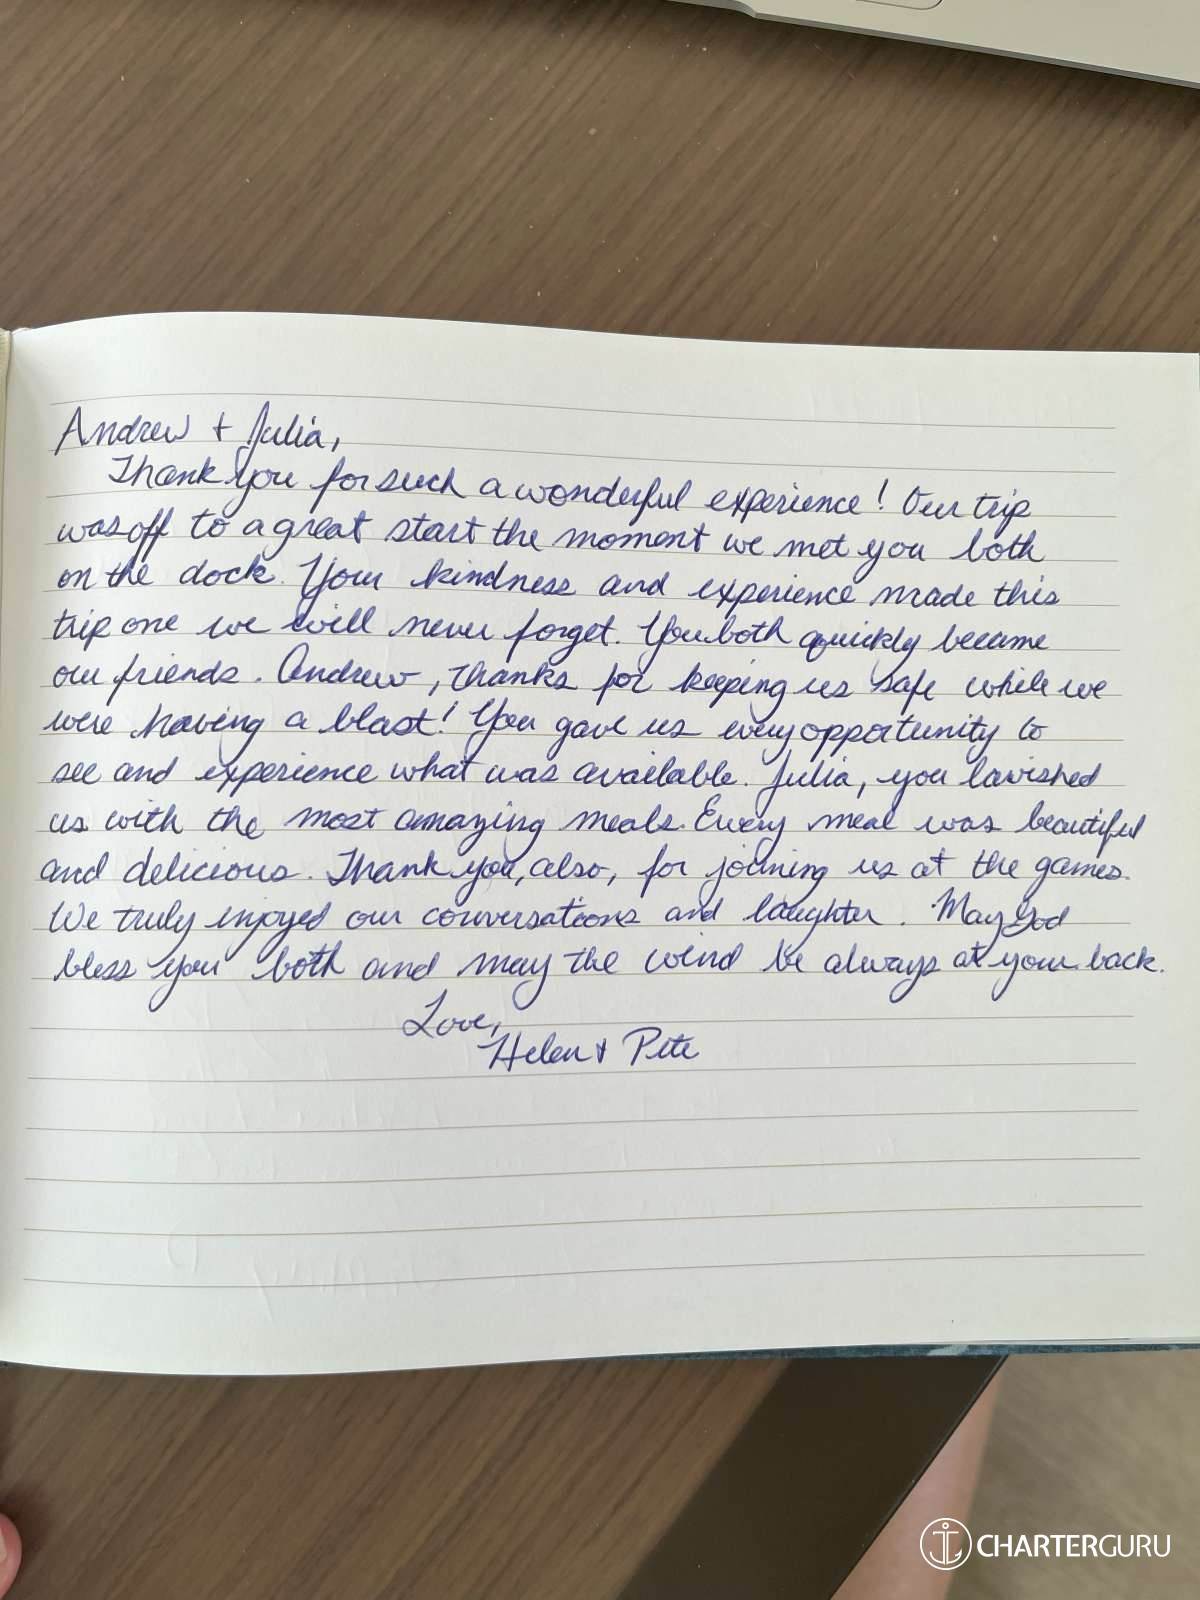 Andrew + Julia,
Thank you for such a wonderful experience! Our trip
was off to a great start the moment we met you both
on the dock. Your kindness and experience made this
trip one we will never forget. You both quickly became
our friends. Andrew, thanks for keeping us safe while we
were having a blast! You gave us every opportunity to
see and experience what was available. Julia, you lavished
us with the most amazing meals. Every meal was beautiful
and delicious. Thank you, also, for joining us at the games.
We truly enjoyed our conversations and laughter. May God
bless you both and may the wind be always at your back.
Love,
Helen + Pete
CHARTERGURU